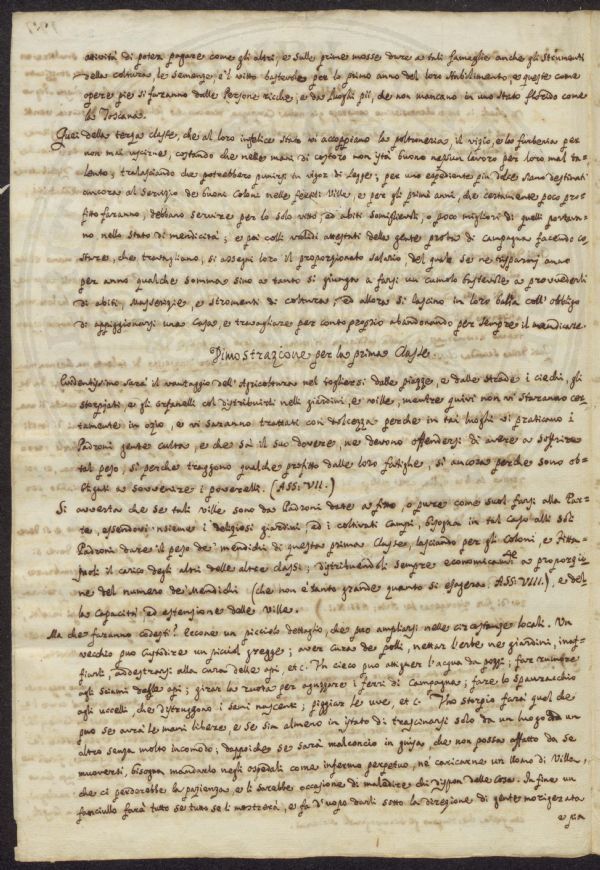 attività di poter pagare come gli altri, e sulle prime mosse dare a tali fameglie anche gli strumenti
della coltura, le semenze, e 'l vitto bastevole per lo primo anno del loro stabilimento, e queste come
opere pie si faranno dalle Persone ricche, e da luoghi pii, che non mancano in uno stato florido come
la Toscana.
Quei della terza classe, che al loro infelice stato vi accoppiano la poltroneria, il vizio, e la furberia per
non mai uscirne, costando che nelle mani di costoro non istà buono nessun lavoro per loro mal ta=
lento, tralasciando che potrebbero punirsi in vigor di legge; per uno espediente più dolce siano destinati
ancora al servizio de buoni Coloni nelle Ville, e per gli primi anni, che certamente poco pro=
fitto faranno, debbano servire per lo solo vitto, ed abiti somiglienti, o poco migliori di quelli portava=
no nello stato di mendicità; e poi colli validi attestati della gente proba di campagna facendo co
sture, che travagliano, si assegni loro il proporzionato salario del quale se ne risparmi anno
per anno qualche somma sino a tanto si giunga a farsi un cumolo bastevole a provvederli
di abiti, masserizie, e stromenti di coltura; ed allora si lascino in loro balìa coll'obbligo
di appiggionarsi una Casa, e travagliare per conto proprio abandonando per sempre il mendicare.
Dimostrazione per la prima Classe.
Evidentissimo sarà il vantaggio dell'Agricoltura nel togliersi dalle piazze, e dalle strade i ciechi, gli
storpiati, e gli orfanelli col distribuirli nelli giardini, e ville, mentre quivi non vi staranno cer=
tamente in ozio, e vi saranno trattati con dolcezza perche in tai luoghi vi praticano i
Padroni gente culta, e che sa il suo dovere, ne devono offendersi di avere a soffrire
tal peso, si perche traggono qualche profitto dalle loro fatighe, si ancora perche sono ob=
bligati a sovvenire i poverelli. (Ass: VII.)
Si avverta che se tali ville sono da Padroni date a fitto, o pure come suol farsi alla Par=
te, essendovi insieme i deliziosi giardini ed i coltivati campi, bisogna in tal caso alli soli
Padroni dare il peso de' mendichi di questa prima Classe, lasciando per gli Coloni, e Fitta=
juoli il carico degli altri delle altre classi; distribuendoli sempre economicamte a proporzio
ne del numero de' Mendichi (che non è tanto grande quanto si esagera. Ass: VIII.), e del=
la capacità ed estensione dalle Ville.
Ma che faranno codesti? Eccone un picciolo dettaglio, che può ampliarsi nelle circostanze locali. Un
vecchio può custodire un picciol gregge; aver cura de polli, nettar l'erbe ne giardini, inaf=
fiarli, addestrarsi alla cura delle api, etc. Un cieco può attigner l'acqua da pozzi; fare rumore
agli sciami delle api; girar la ruota per aguzzare i ferri di Campagna; fare lo spauracchio
agli uccelli, che distruggono i semi nascenti; piggiar le uve, etc. Uno storpio farà quel che
può se avrà le mani libere, e se sia almeno in istato di trascinarsi solo da un luogo ad un
altro senza molto incomodo; dappoiche se sarà malconcio in guisa, che non possa affatto da se
muoversi, bisogna mandarlo negli ospedali come infermo perpetuo, ne caricarne un Uomo di Villa,
che ci perderebbe la pazienza, e li sarebbe occasione di maledire chi dispon delle Cose. In fine un
fanciullo farà tutto se tutto se li mostrerà, e fa d'uopo darli sotto la direzione di gente morigerata
e pia